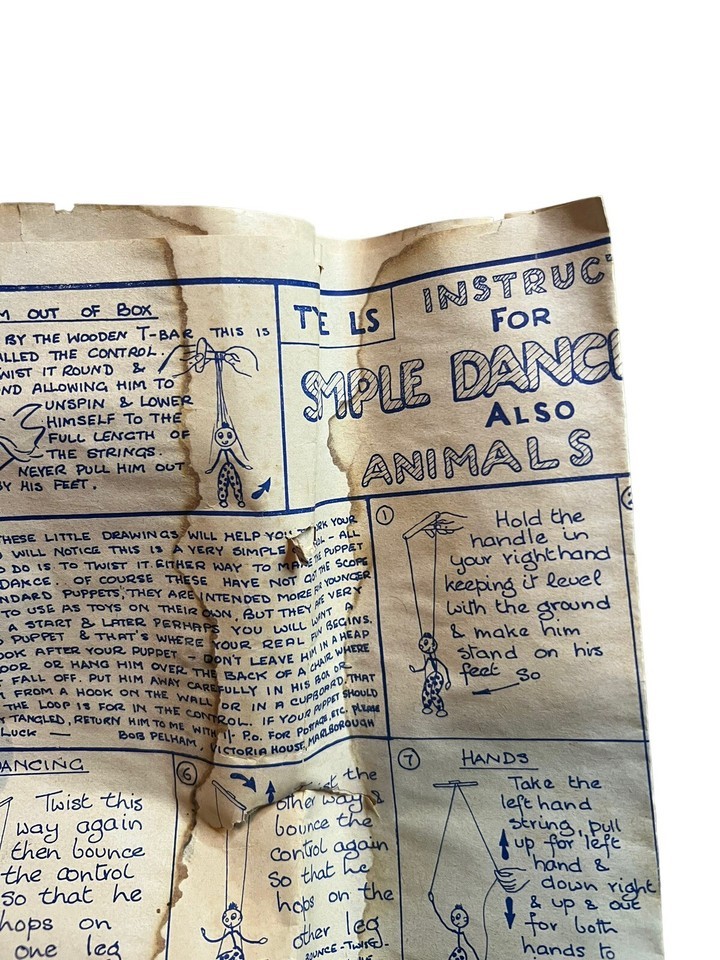 M OUT OF BOX
BY THE WOODEN T-BAR THIS IS
ALLED THE CONTROL.
WIST IT ROUND &
ND ALLOWING HIM TO
UNSPIN & LOWER
HIMSELF TO THE
FULL LENGTH OF
THE STRINGS.
NEVER PULL HIM OUT
BY HIS FEET.
LS
INSTRUC
FOR
IMPLE DANC
ALSO
ANIMALS
THESE LITTLE DRAWINGS WILL HELP YOU WORK YOUR
WILL NOTICE THIS IS A VERY SIMPLE OL - ALL
DO IS TO TWIST IT EITHER WAY TO MAKE THE PUPPET
DANCE. OF COURSE THESE HAVE NOT GOT THE SCOPE
NDARD PUPPETS, THEY ARE INTENDED MORE FOR YOUNGER
TO USE AS TOYS ON THEIR OWN, BUT THEY ARE VERY
A START & LATER PERHAPS YOU WILL WANT A
PUPPET & THAT'S WHERE YOUR REAL FUN BEGINS.
OOK AFTER YOUR PUPPET - DON'T LEAVE HIM IN A HEAP
OOR OR HANG HIM OVER THE BACK OF A CHAIR WHERE
FALL OFF. PUT HIM AWAY CAREFULLY IN HIS BOX OR
M FROM A HOOK ON THE WALL OR IN A CUPBOARD, THAT
THE LOOP IS FOR IN THE CONTROL. IF YOUR PUPPET SHOULD
TANGLED, RETURN HIM TO ME WITH 1/- P.O. FOR POSTAGE, ETC. PLEASE
LUCK — BOB PELHAM, VICTORIA HOUSE, MARLBOROUGH
1
Hold the
handle in
your right hand
keeping it level
with the ground
& make him
stand on his
feet
So
ANCING
Twist this
way again
then bounce
the control
So that he
hops on
one leg
6
the
other way &
bounce the
control again
So that he
hops on the
other leg
BOUNCE-TWIST-
7
HANDS
Take the
left hand
string, pull
up for left
hand &
down right
& up & out
for both
hands to